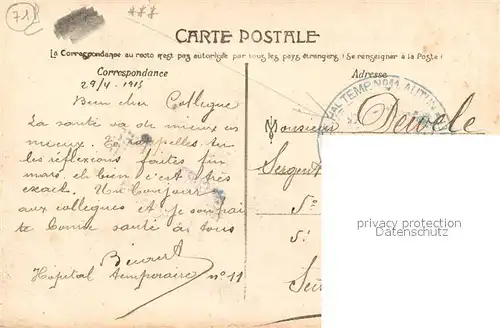 71
***
CARTE POSTALE
La Correspondance au recto n'est pas autorisée par tous les pays étrangers (Se renseigner à la Poste)
Correspondance
Adresse
29/4. 1915
Bien cher Collègue
La santé va de mieux en
mieux. Te rappelles-tu
les réflexions faites fin
mars, eh bien c'est très
exact. Un bonjour
aux collègues et je souhai
te bonne santé à tous
Hopital temporaire n° 11
TEMP. N° 11 AUTUN
Monsieur Dewele
Sergent
privacy protection
service